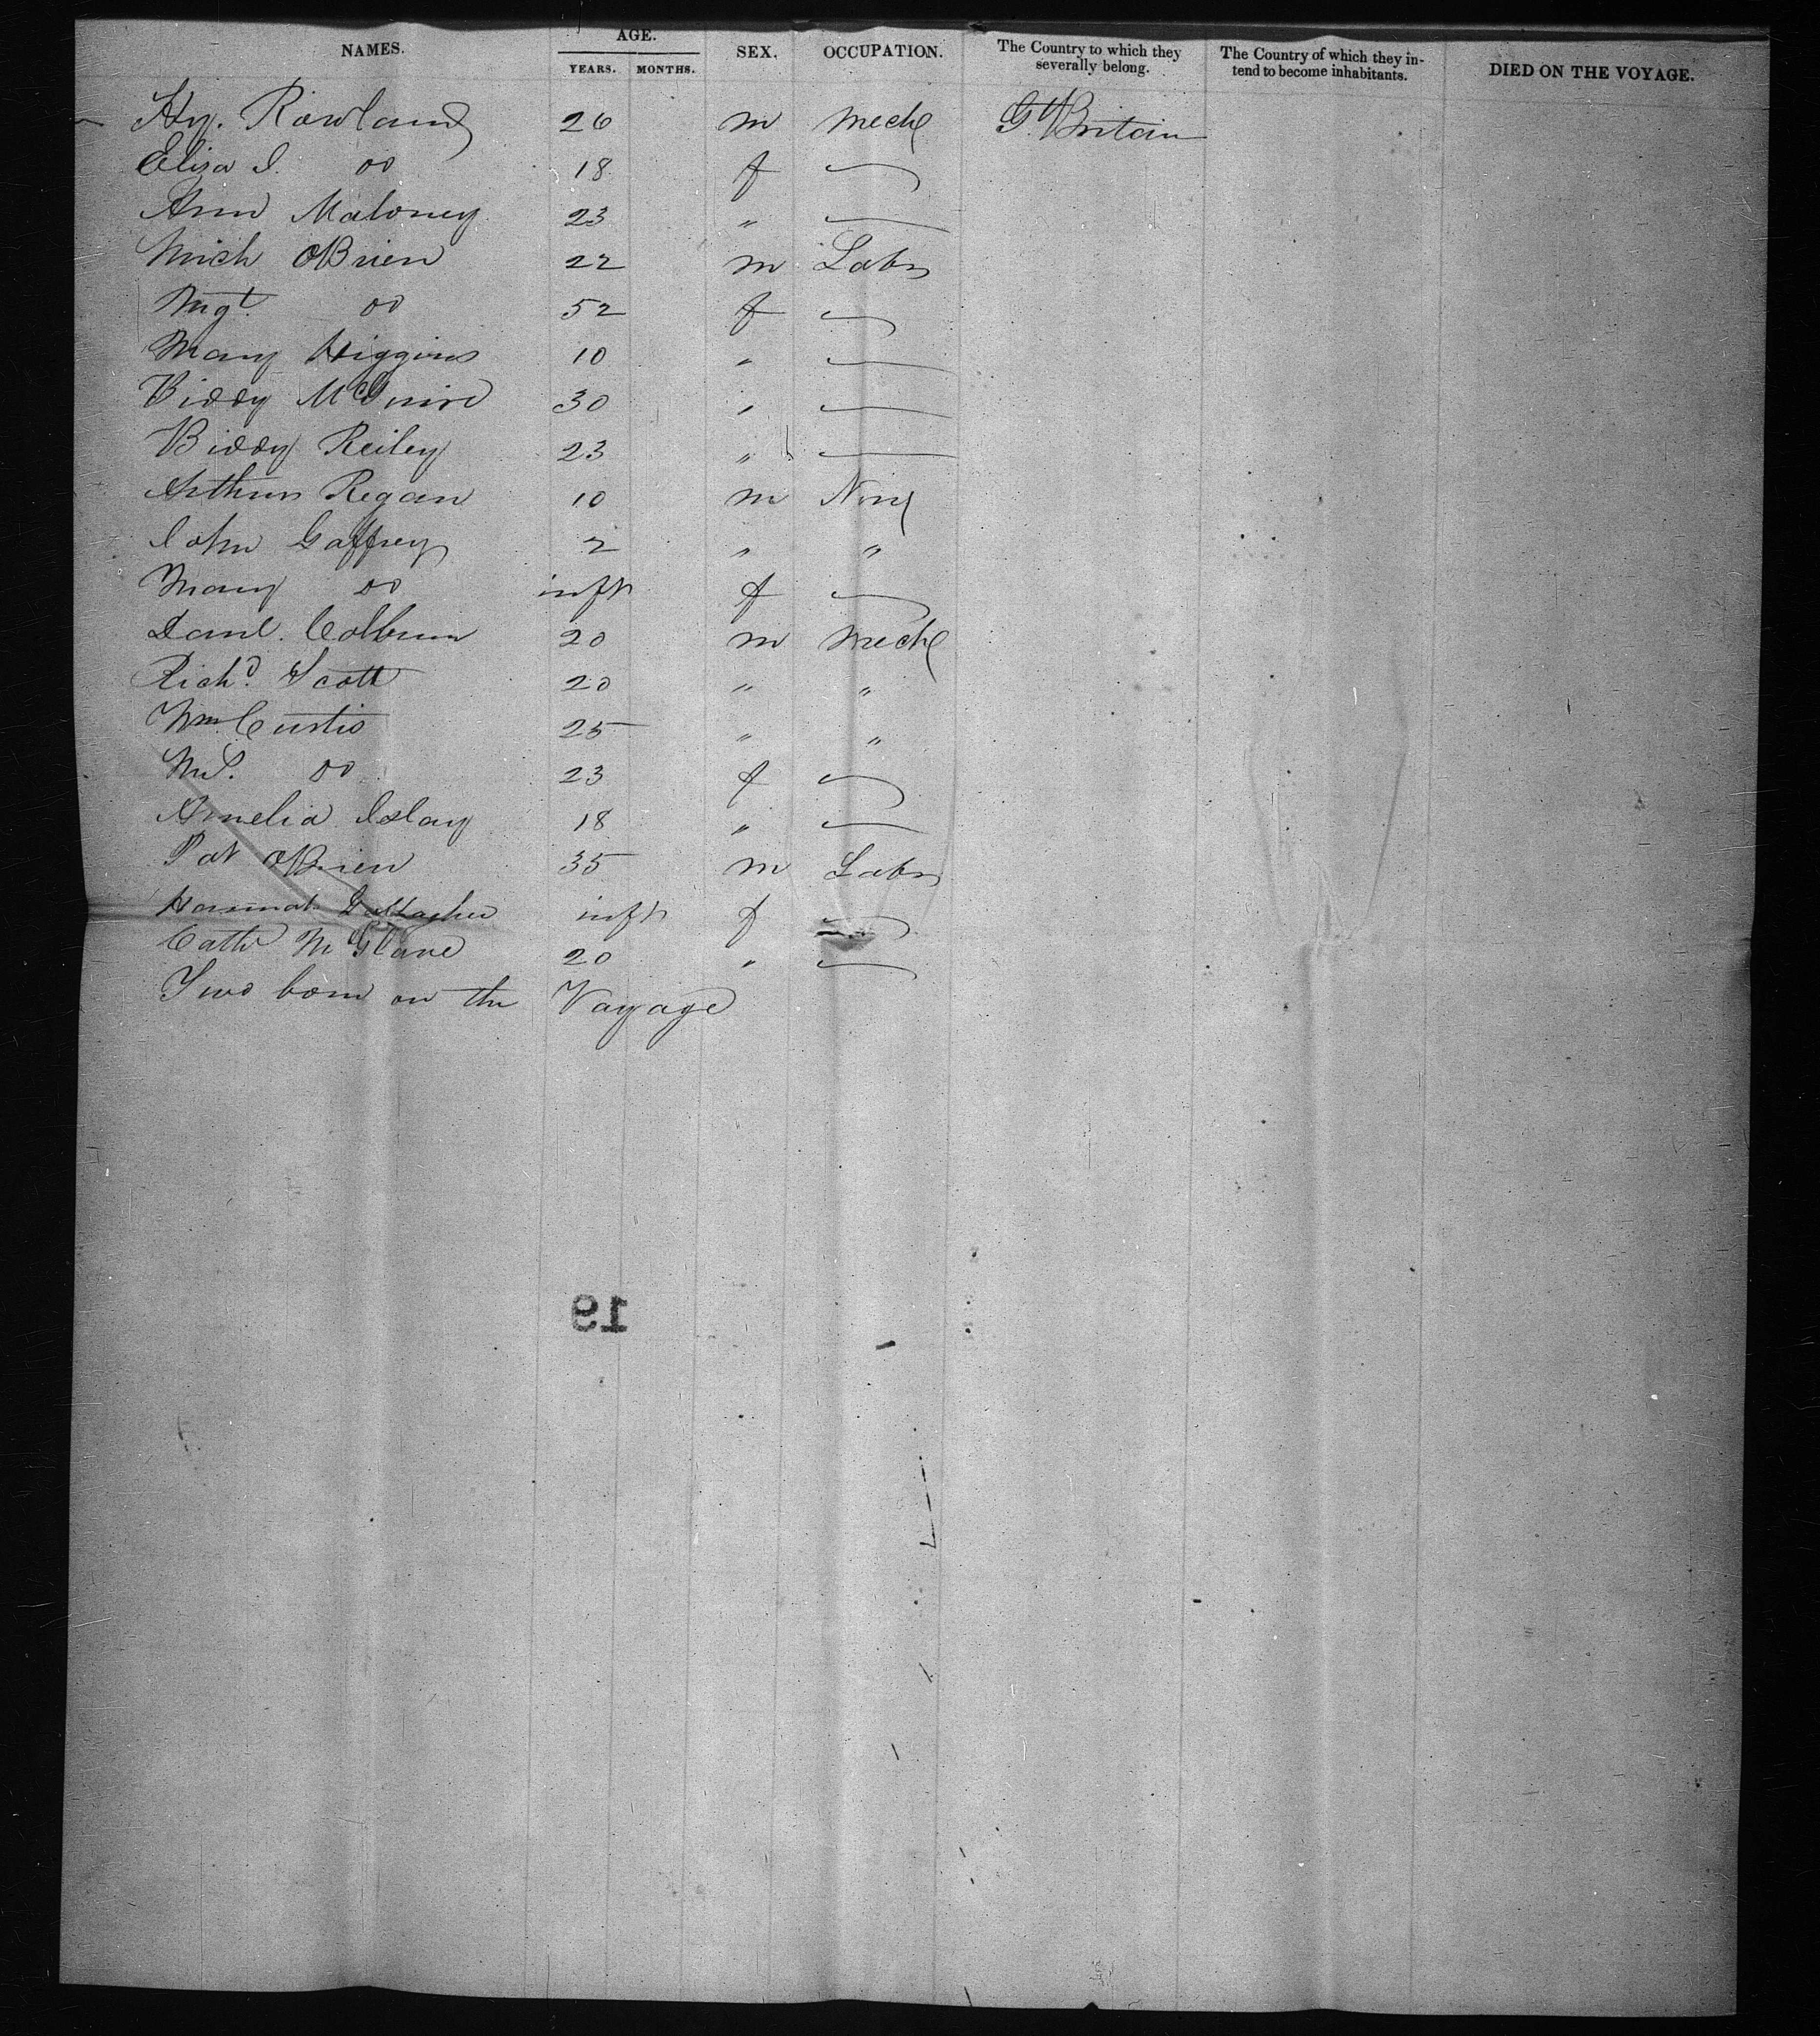 NAMES. AGE. YEARS. MONTHS. SEX. OCCUPATION. The Country to which they severally belong. The Country of which they intend to become inhabitants. DIED ON THE VOYAGE.
Hy. Rowland 26 m Mech Gt Britain
Eliza J. do 18 f —
Ann Maloney 23 " —
Mich OBrien 22 m Labr
Mgt. do 52 f —
Mary Higgins 10 " —
Biddy McGuire 30 " —
Biddy Reiley 23 " —
Arthur Regan 10 m None
John Gaffrey 2 " "
Mary do inft f —
Danl. Colburn 20 m Mech
Richd. Scott 20 " "
Wm Curtis 25 " "
do 23 f —
Amelia Islay 18 " —
Pat OBrien 35 m Labr
Hannah Gallagher inft f —
Cath McGlave 20 " —
Two born on the Voyage
19